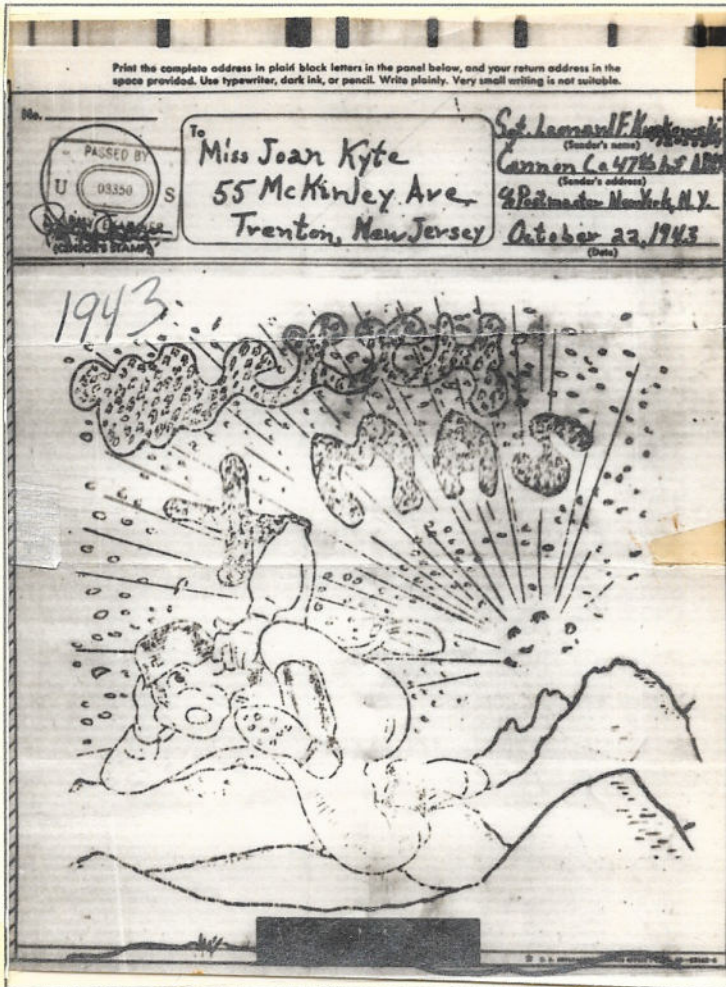 Print the complete address in plain block letters in the panel below, and your return address in the
space provided. Use typewriter, dark ink, or pencil. Write plainly. Very small writing is not suitable.
No.
PASSED BY
U 03350 S
ARMY EXAMINER
(CENSOR'S STAMP)
To
Miss Joan Kyte
55 McKinley Ave
Trenton, New Jersey
Sgt. Leonard F.
(Sender's name)
Cannon Co 47th Inf
(Sender's address)
% Postmaster New York, N.Y.
October 22, 1943
(Date)
1943
MERRY
XMAS